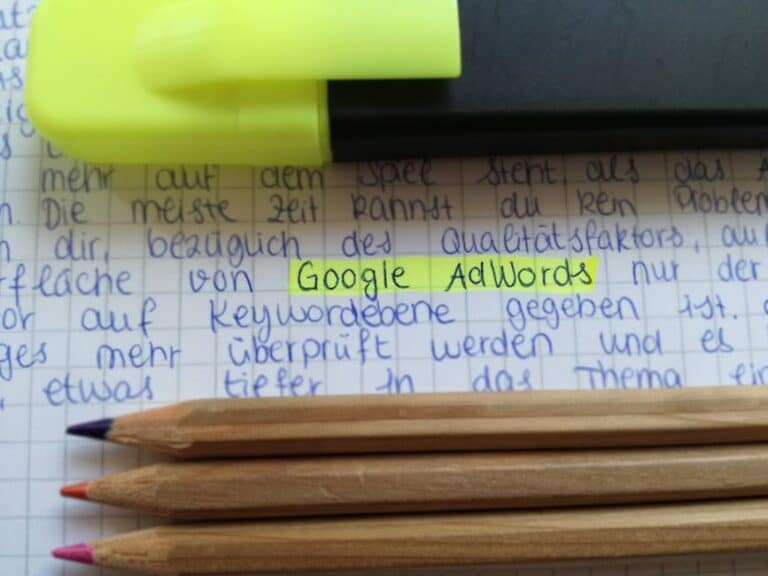 mehr auf dem Spiel steht, als das
Die meiste Zeit kannst du kein Problem
dir, bezüglich des Qualitätsfaktors, au
rfläche von Google AdWords nur der
or auf Keywordebene gegeben ist.
ges mehr überprüft werden und es
etwas tiefer in das Thema ein